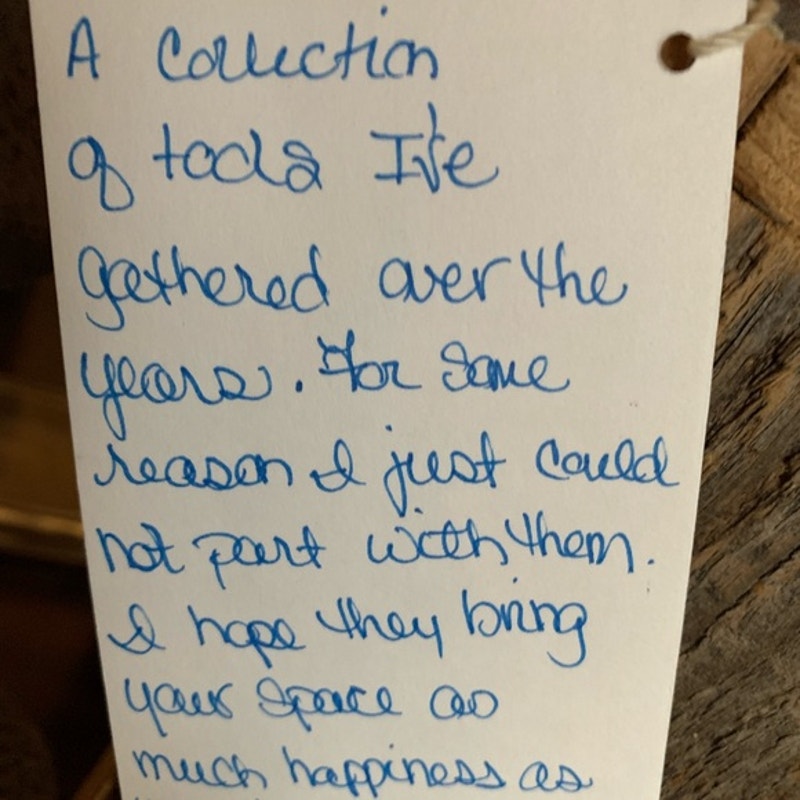 A Collection
of tools I've
gathered over the
years. For some
reason I just could
not part with them.
I hope they bring
your space as
much happiness as